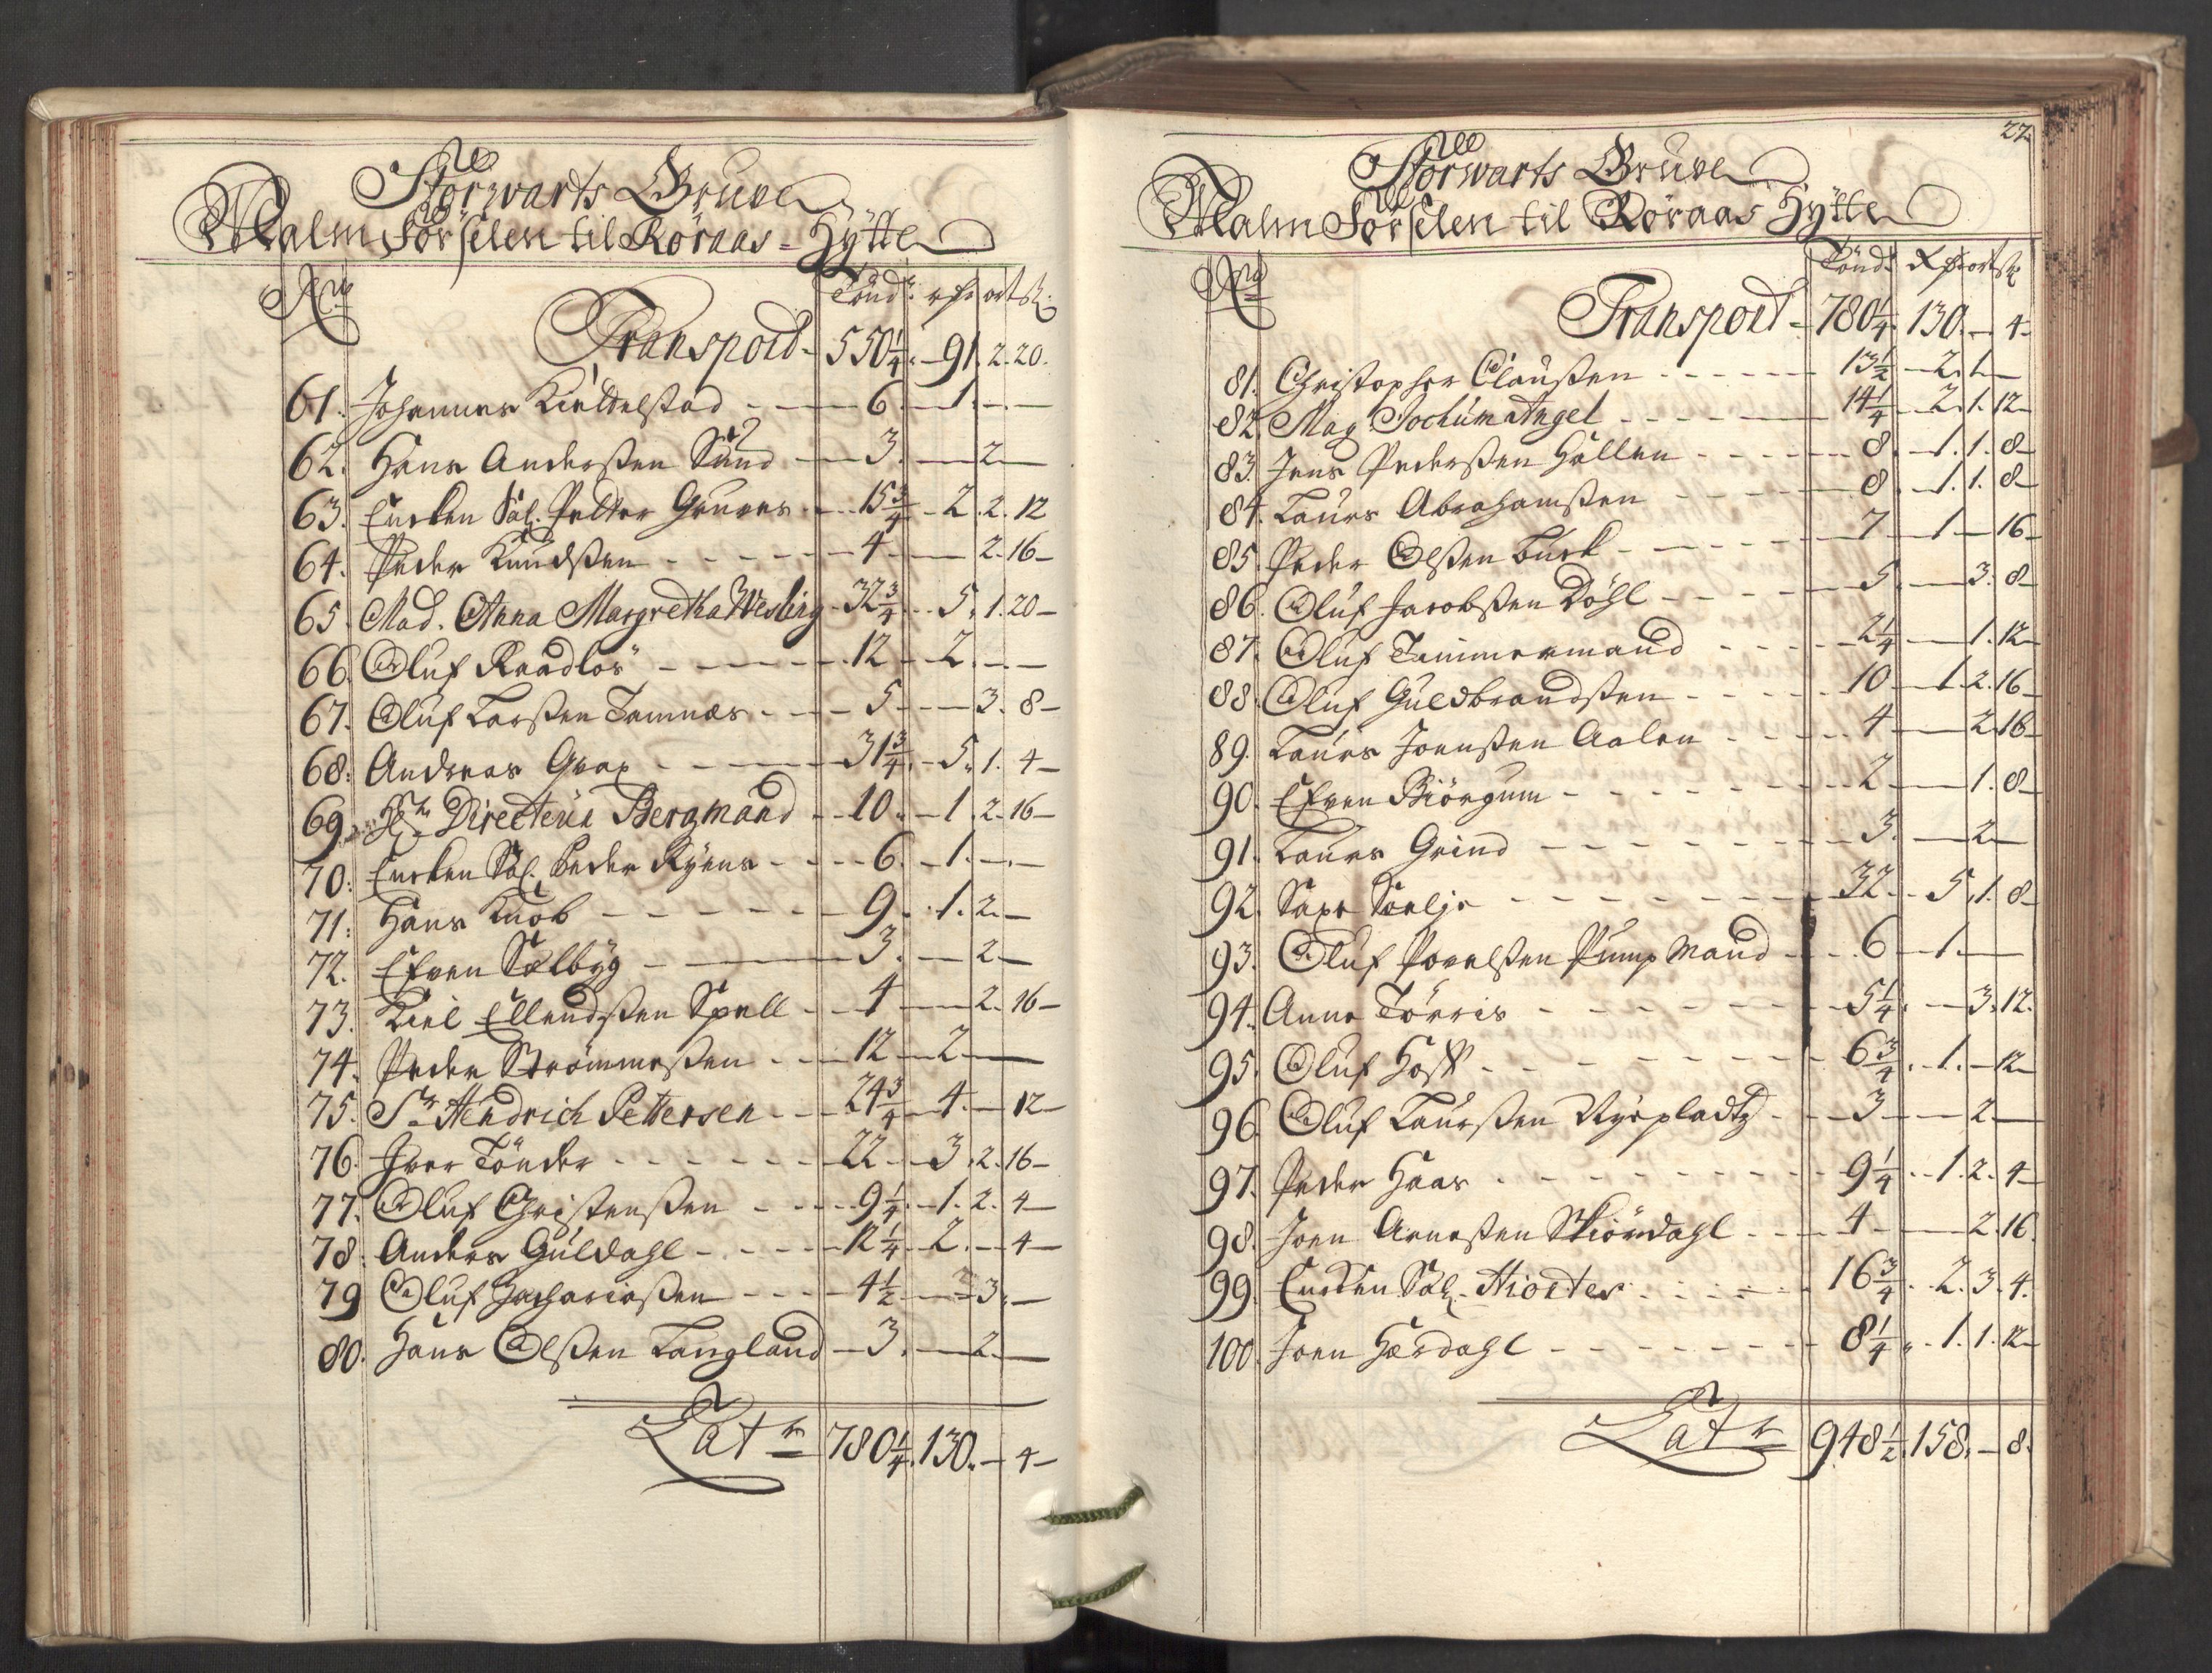 Storwarts Gruve
Malm Förselen til Röraas-Hÿtte
No Tönd: rdr ort sk:
Transport - 550 1/4. - 91. 2. 20.
61. Johannes Kieldelstad - - 6. - 1. - -
62. Hans Anderßen Sund - 3. - 2 -
63. Encken Sal. Petter Gruves - 15 3/4 - 2. 2. 12
64. Peder Knudßen - - - - 4 - - 2. 16 -
65. Mad. Anna Margretha Wesling - 32 3/4 - 5. 1. 20 -
66. Oluf Raadlös - - - - 12 - 2. - -
67. Oluf Larßen Tamnæs - - - 5 - - 3. 8 -
68. Andreas Graa - - - 31 3/4. - 5. 1. 4 -
69. Hr Directeur Bergmand - - 10. - 1. 2. 16 -
70. Encken Sal. Peder Ryens - - - 6. - 1. - -
71. Hans Knob - - - - - - 9. - 1. 2. -
72. Efven Sælbÿg - - - 3. - 2 -
73. Kiel Ellendßen Spell - - 4 - 2. 16 -
74. Peder Strömmeßen - - - 12 - 2 - -
75. Sr Hendrich Pettersen - - - 24 3/4 - 4. - 12 -
76. Iver Tönder - - - - - - 22 - - 3. 2. 16 -
77. Oluf Christenßen - - - - 9 1/4. - 1. 2. 4 -
78. Anders Guldahl - - - - 12 1/4. - 2. - 4 -
79 Oluf Zachariaßen - - - - 4 1/2 - - 3. -
80. Hans Olßen Langland - 3. - 2. -
Latr 780 1/4. 130. - 4 -
22.
Storwarts Gruve
Malm Förselen til Röraas Hÿtte
No Tönd: Rdr ort sk
Transport - 780 1/4. 130. - 4 -
81. Christopher Claußen - - - - - 13 1/2 - 2. 1. -
82. Mag. Jochum Angel - - - - 14 1/4. - 2. 1. 12 -
83. Jens Pederßen Hallen - - - - 8. - 1. 1. 8 -
84. Laurs Abrahamßen - - - - 8. - 1. 1. 8 -
85. Peder Olßen Buck - - - - - 7 - 1 - 16 -
86. Oluf Jacobßen Döhl - - - - 5. - 3. 8 -
87. Oluf Timmermand - - - - 2 1/4 - 1. 12 -
88. Oluf Guldbrandßen - - - - 10 - 1. 2. 16 -
89. Laurs Joenßen Aalen - - - - 4 - 2. 16 -
90. Efven Biörgum - - - - - - 2 - 1. 8 -
91. Laurs Grind - - - - - - 3. - 2 -
92. Saxe Sælje - - - - - - 32. - 5. 1. 8 -
93. Oluf Povelßen Pump Mand - - - 6 - 1. -
94. Anne Törris - - - - - - 5 1/4. - 3. 12.
95. Oluf Hoff - - - - - - 6 3/4. - 1. - 12 -
96. Oluf Laurßen Nÿepladtz - - - 3 - - 2. -
97. Peder Haas - - - - - - 9 1/4. - 1. 2. 4 -
98. Joen Arneßen Stiördahl - - - 4 - 2. 16.
99. Encken Sal. Hiorter - - - - 16 3/4. - 2. 3. 4.
100. Joen Hærdahl - - - - - - 8 1/4. - 1. 1. 12 -
Latr 948 1/2. 158. - 8.